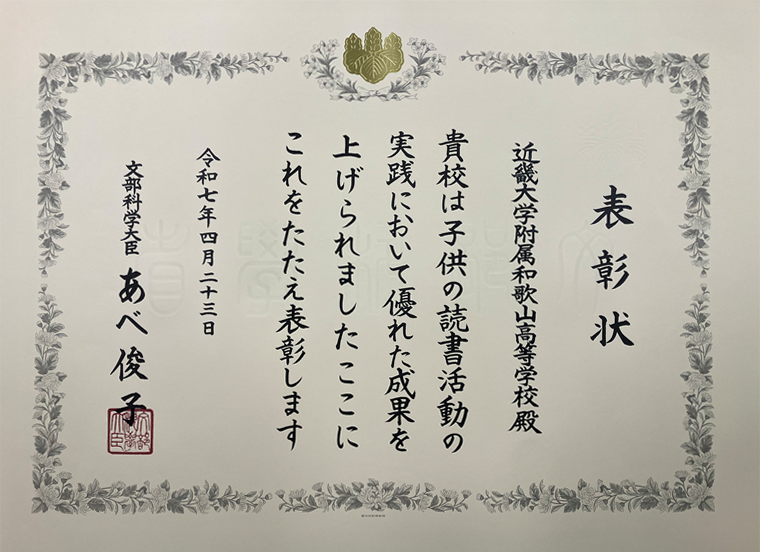 表彰状
近畿大学附属和歌山高等学校殿
貴校は子供の読書活動の
実践において優れた成果を
上げられましたここに
これをたたえ表彰します
令和七年四月二十三日
文部科学大臣 あべ俊子